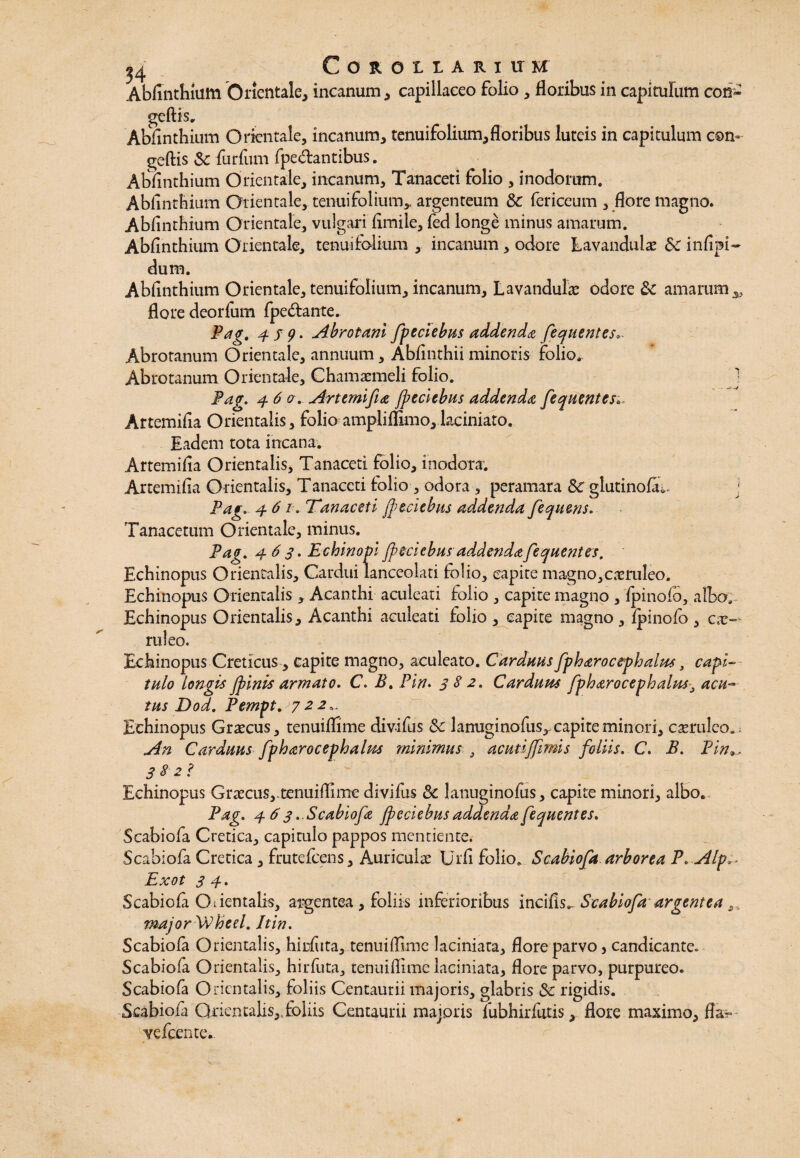 34 COROLLARIUM
Abſinthium Orientale, incanum, capillaceo folio, floribus in capitulum con-
geſtis.
Abſinthium Orientale, incanum, tenuifolium, floribus luteis in capitulum con-
geſtis & ſurſum ſpectantibus.
Abſinthium Orientale, incanum, Tanaceti folio, inodorum.
Abſinthium Orientale, tenuifolium, argenteum & ſericeum, flore magno.
Abſinthium Orientale, vulgari ſimile, ſed longè minus amarum.
Abſinthium Orientale, tenuifolium, incanum, odore Lavandulæ & inſipi-
dum.
Abſinthium Orientale, tenuifolium, incanum, Lavandulæ odore & amarum,
flore deorſum ſpectante.
Pag. 459. Abrotani ſpeciebus addendæ ſequentes.
Abrotanum Orientale, annuum, Abſinthii minoris folio.
Abrotanum Orientale, Chamæmeli folio.
Pag. 460. Artemiſiæ ſpeciebus addendæ ſequentes.
Artemiſia Orientalis, folio ampliſſimo, laciniato.
Eadem tota incana.
Artemiſia Orientalis, Tanaceti folio, inodora.
Artemiſia Orientalis, Tanaceti folio, odora, peramara & glutinoſa.
Pag. 461. Tanaceti ſpeciebus addenda ſequens.
Tanacetum Orientale, minus.
Pag. 463. Echinopi ſpeciebus addendæ ſequentes.
Echinopus Orientalis, Cardui lanceolati folio, capite magno, cæruleo.
Echinopus Orientalis, Acanthi aculeati folio, capite magno, ſpinoſo, albo.
Echinopus Orientalis, Acanthi aculeati folio, capite magno, ſpinoſo, cæ-
ruleo.
Echinopus Creticus, capite magno, aculeato. Carduus ſphærocephalus, capi-
tulo longis ſpinis armato. C. B. Pin. 382. Carduus ſphærocephalus, acu-
tus Dod. Pempt. 722.
Echinopus Græcus, tenuiſſime diviſus & lanuginoſus, capite minori, cæruleo.
An Carduus ſphærocephalus minimus, acutiſſimis foliis. C. B. Pin.
382?
Echinopus Græcus, tenuiſſime diviſus & lanuginoſus, capite minori, albo.
Pag. 463. Scabioſæ ſpeciebus addendæ ſequentes.
Scabioſa Cretica, capitulo pappos mentiente.
Scabioſa Cretica, fruteſcens, Auriculæ Urſi folio. Scabioſa arborea P. Alp.
Exot 34.
Scabioſa Orientalis, argentea, foliis inferioribus inciſis. Scabioſa argentea,
major Wheel. Itin.
Scabioſa Orientalis, hirſuta, tenuiſſime laciniata, flore parvo, candicante.
Scabioſa Orientalis, hirſuta, tenuiſſime laciniata, flore parvo, purpureo.
Scabioſa Orientalis, foliis Centaurii majoris, glabris & rigidis.
Scabioſa Orientalis, foliis Centaurii majoris ſubhirſutis, flore maximo, fla-
veſcente.